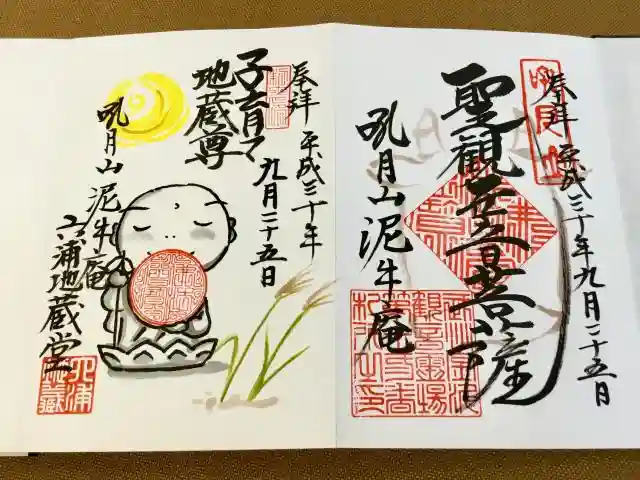 奉拝 平成三十年九月二十五日
聖観世音菩薩
吼月山泥牛庵
奉拝 平成三十年
九月二十五日
子育て
地蔵尊
吼月山泥牛庵
六浦地蔵堂
六浦
地蔵